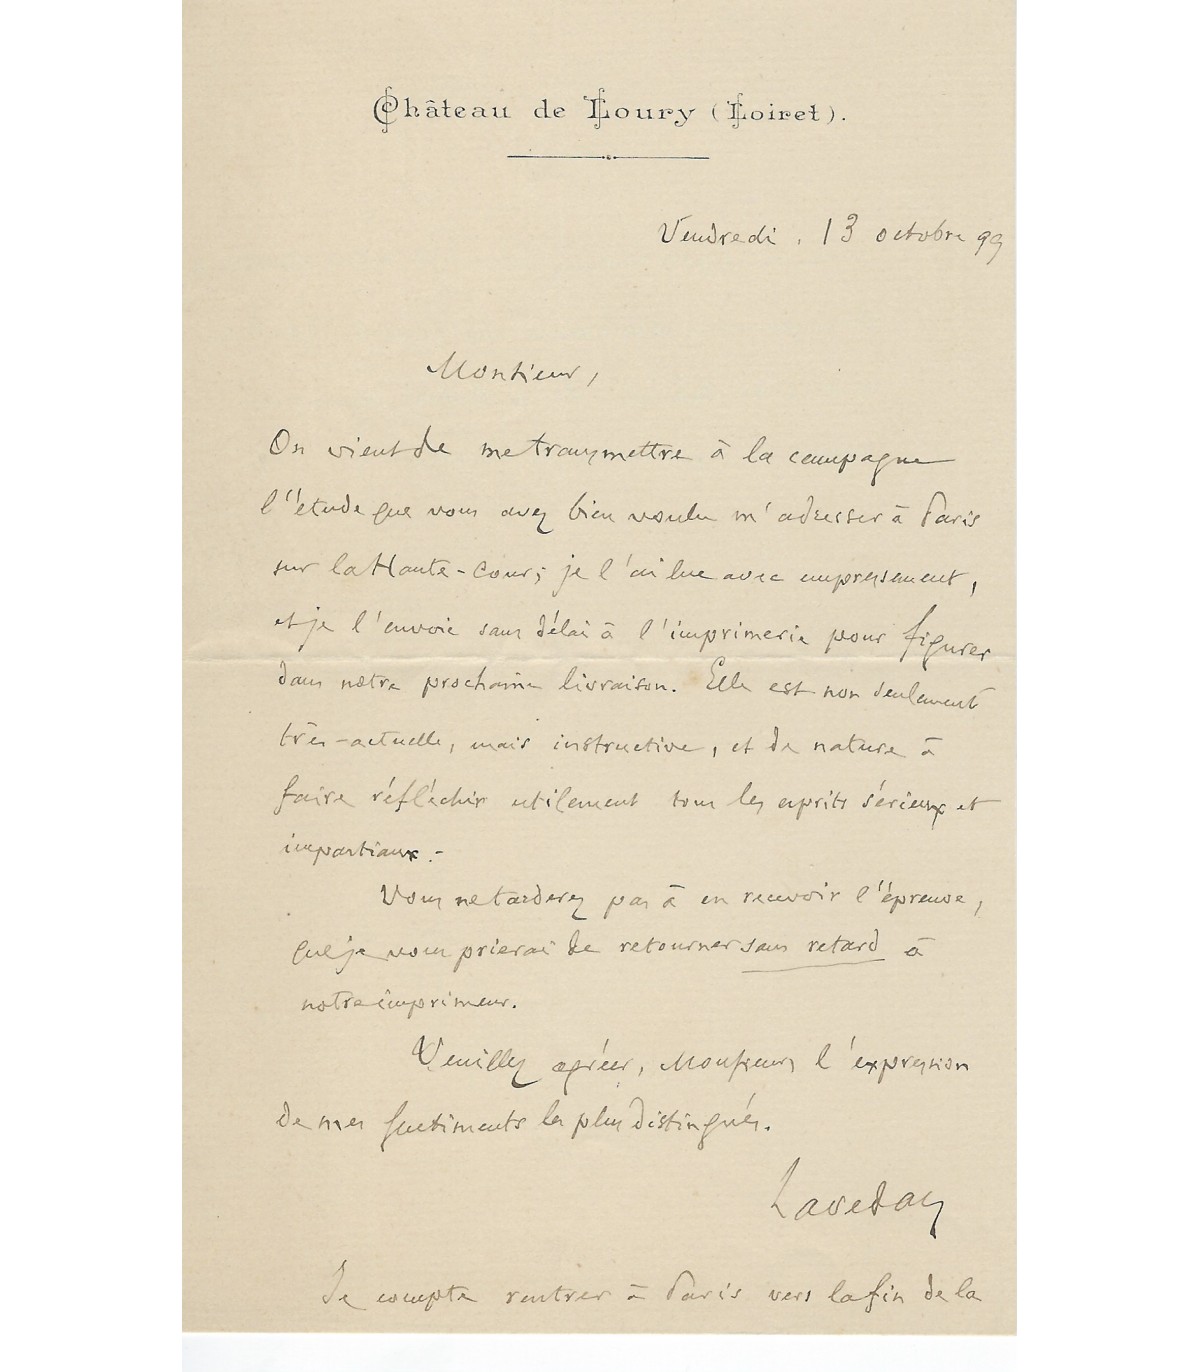 Château de Loury (Loiret).
Vendredi, 13 octobre 99
Monsieur,
On vient de me transmettre à la campagne
l'étude que vous avez bien voulu m'adresser à Paris
sur la Haute-Cour; je l'ai lue avec empressement,
et je l'envoie sans délai à l'imprimerie pour figurer
dans notre prochaine livraison. Elle est non seulement
très-actuelle, mais instructive, et de nature à
faire réfléchir utilement tous les esprits sérieux et
impartiaux.-
Vous ne tarderez pas à en recevoir l'épreuve,
que je vous prierai de retourner sans retard à
notre imprimeur.
Veuillez agréer, Monsieur, l'expression
de mes sentiments les plus distingués.
Lavedan
Je compte rentrer à Paris vers la fin de la